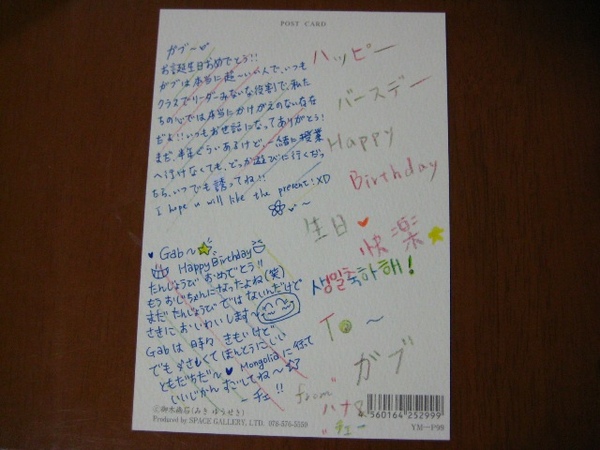 POST CARD
ガブ〜
お誕生日おめでとう!!
ガブは本当に超〜いい人で、いつも
クラスでリーダーみたいな役割で、私た
ちの心では本当にかけがえのない存在
だよ!!いつもお世話になってありがとう!
まだ半年ぐらいあるけど、一緒に授業
へ行けなくても、どっか遊びに行くだっ
たら、いつでも誘ってね!!
I hope u will like the present! XD
♥ Gab〜
Happy Birthday
たんじょうび おめでとう!!
もうおじちゃんになったよね(笑)
まだたんじょうびではないんだけど
さきに おいわいします〜
Gabは 時々 きもいけど
でも やさしくて ほんとうにいい
ともだちだ〜♥ Mongoliaに帰って
いいじかん すごしてね〜
ーチェ!!
ハッピー
バースデー
Happy
Birthday
生日♥
快楽★
생일축하해!
To 〜
ガブ
from
ハナ
チェー
ⓒ御水幽石(みき ゆうせき)
Produced by SPACE GALLERY, LTD. 072-576-5559
4 560164 252999
YM-P99